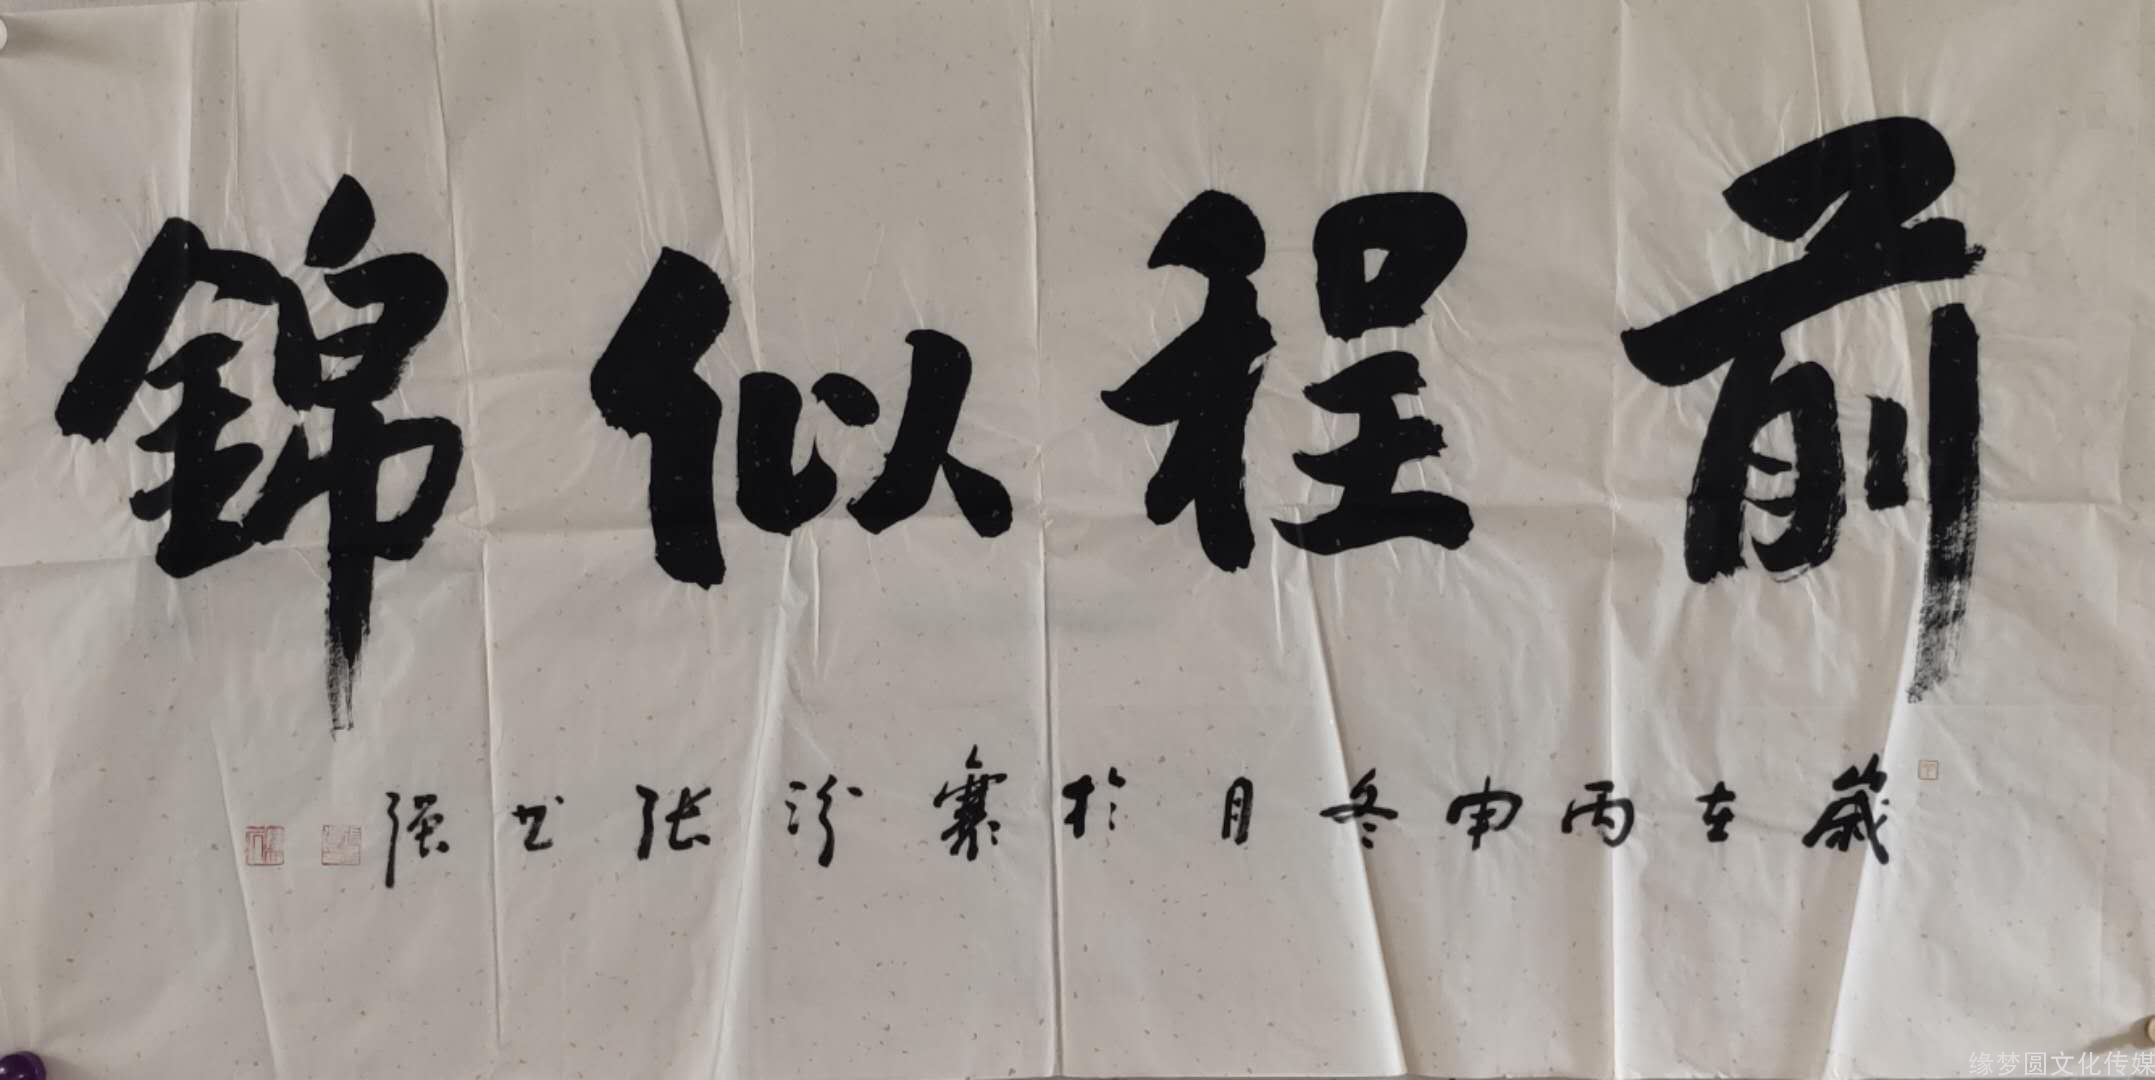 前程似錦
歲在丙申冬月於襄汾張書強
缘梦圆文化传媒